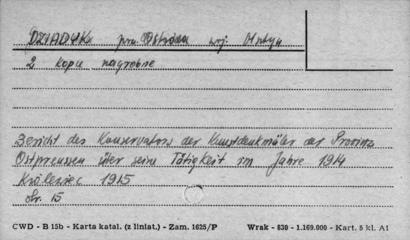 DZIADYK pow. Ostróda woj. Olsztyn
2 kopce nagrobne
Bericht des Konservators der Kunstdenkmäler der Provinz
Ostpreussen über seine Tätigkeit im Jahre 1914
Królewiec 1915
Str. 15
CWD - B 15b - Karta katal. (z liniat.) - Zam. 1625/P Wrak - 830 - 1.169.000 - Kart. 5 kl. A1